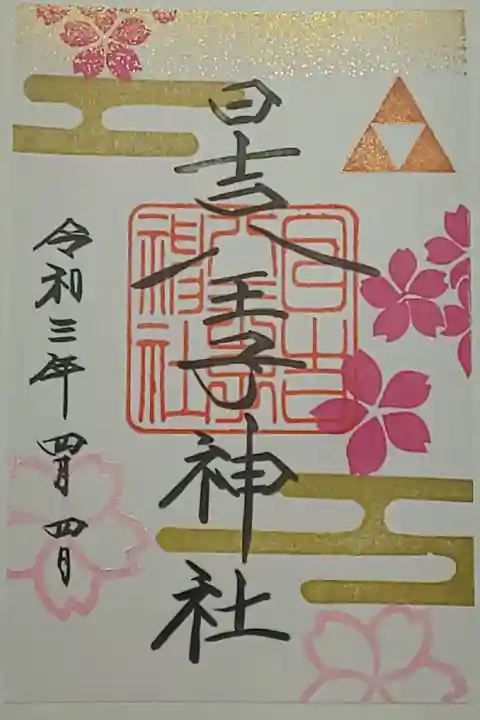 日吉八王子神社
日吉
八王子
神社
令和三年 四月 四日